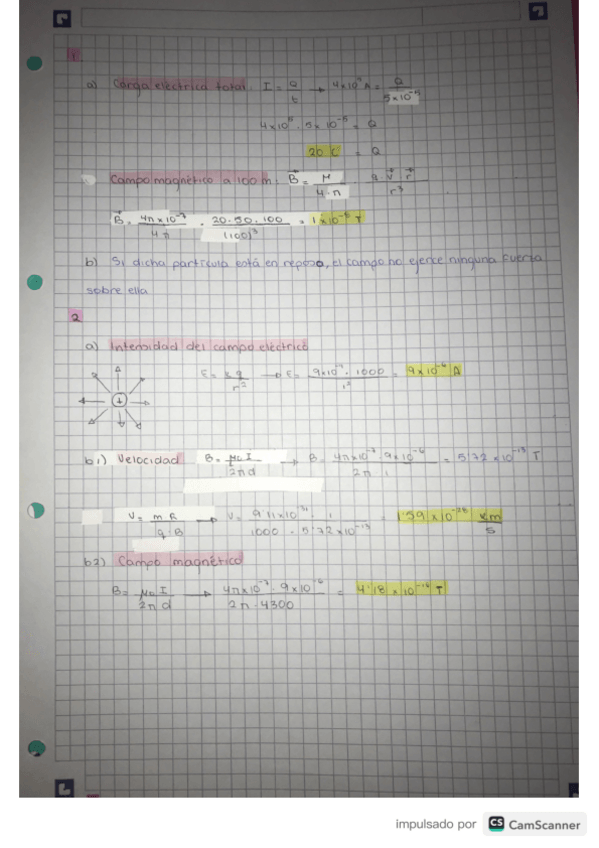 1
a) Carga eléctrica total: I = Q/t → 4x10⁵ A = Q/5x10⁻⁵
4x10⁵ · 5x10⁻⁵ = Q
20 C = Q
Campo magnético a 100 m: B = μ/4·π q v r/r³
B = 4πx10⁻⁷/4π · 20·50·100/(100)³ = 1x10⁻⁸ T
b) Si dicha partícula está en reposo, el campo no ejerce ninguna fuerza
sobre ella
2
a) Intensidad del campo eléctrico
+
E = k q/r² → E = 9x10⁻⁹ · 1000/1² = 9x10⁻⁶ A
b1) Velocidad B = μ₀ I/2πd → B = 4πx10⁻⁷ · 9x10⁻⁶/2π · 1 = 5'72 x10⁻¹³ T
V = m R/q · B → V = 9'11x10⁻³¹ · 1/1000 · 5'72x10⁻¹³ = 1'59x10⁻²⁸ km/s
b2) Campo magnético
B = μ₀ I/2πd → 4πx10⁻⁷ · 9x10⁻⁶/2π · 4300 = 4'18 x 10⁻¹⁶ T
impulsado por CS CamScanner